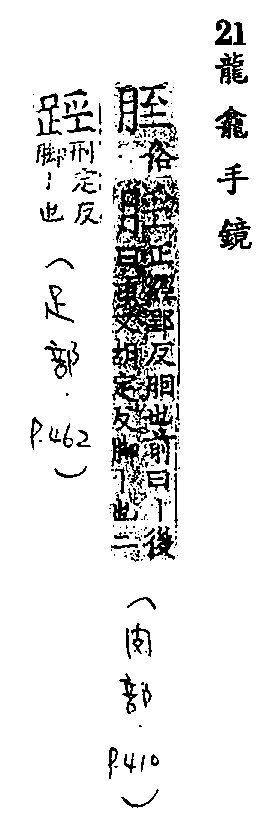 21龍龕手鏡
胵俗
正經郢反胭也前曰丨後
又胡定反脚丨也二
(肉部.P.410)
踁刑定反
脚丨也
(足部.P.462)